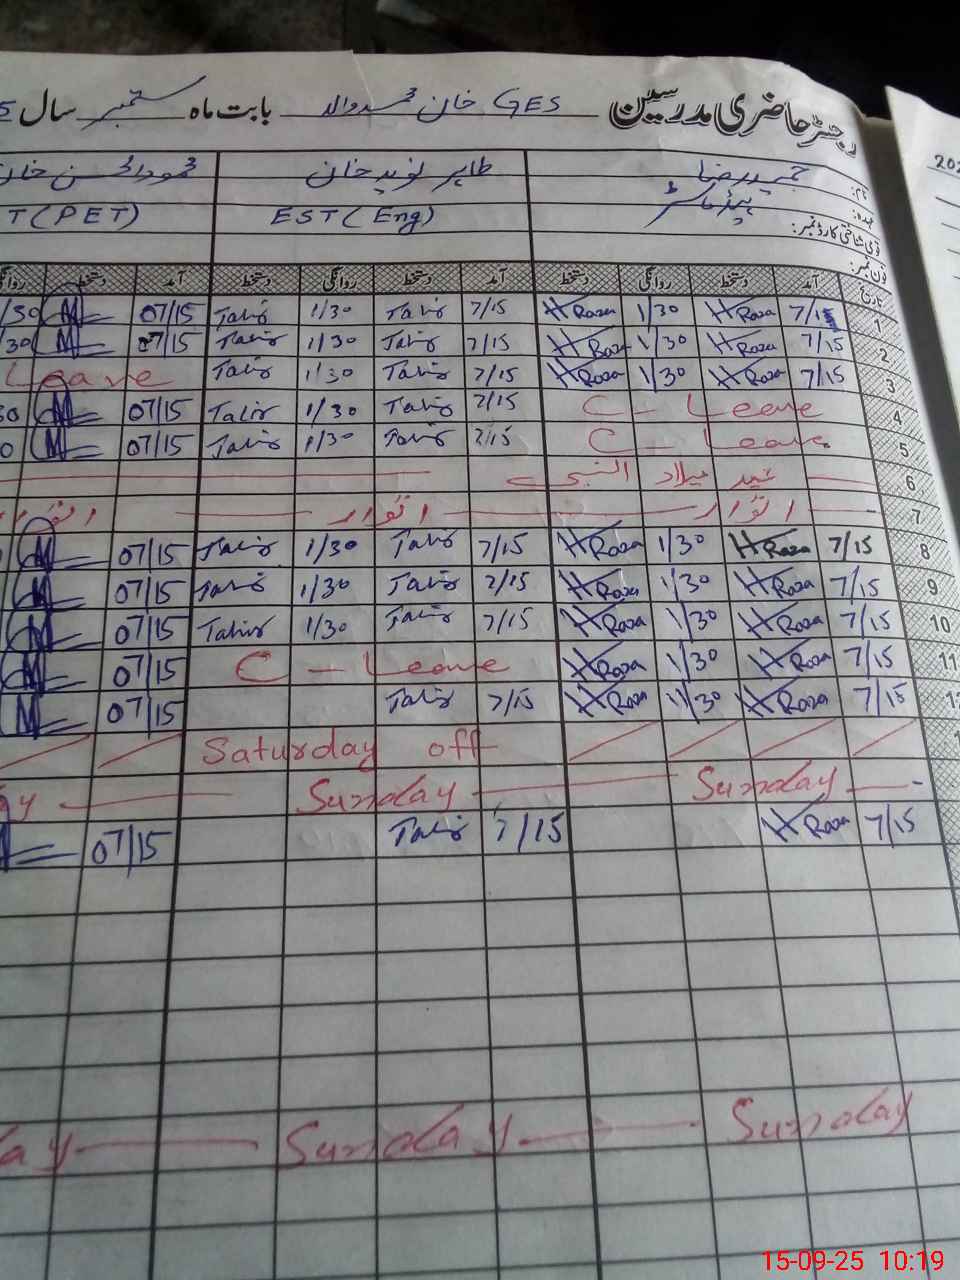 رجسٹر حاضری مدرسین GES خان محمد والہ بابت ماہ ستمبر سال 5
نام: حمید رضا طاہر نوید خان محمود الحسن خان
عہدہ: ہیڈ ماسٹر EST (Eng) T (PET)
قومی شناختی کارڈ نمبر:
فون نمبر:
تاریخ آمد دستخط روانگی دستخط آمد دستخط روانگی دستخط آمد دستخط روانگی
1 7/15 HRaza 1/30 HRaza 7/15 Tahir 1/30 Tahir 07/15 /30
2 7/15 HRaza 1/30 HRaza 7/15 Tahir 1/30 Tahir 07/15 /30
3 7/15 HRaza 1/30 HRaza 7/15 Tahir 1/30 Tahir Leave
4 C - Leave 7/15 Tahir 1/30 Tahir 07/15 30
5 C - Leave 7/15 Tahir 1/30 Tahir 07/15 0
6 عید میلاد النبی
7 اتوار اتوار اتوار
8 7/15 HRaza 1/30 HRaza 7/15 Tahir 1/30 Tahir 07/15
9 7/15 HRaza 1/30 HRaza 7/15 Tahir 1/30 Tahir 07/15
10 7/15 HRaza 1/30 HRaza 7/15 Tahir 1/30 Tahir 07/15
11 7/15 HRaza 1/30 HRaza C - Leave 07/15
12 7/15 HRaza 1/30 HRaza 7/15 Tahir 07/15
Saturday off
Sunday Sunday ay
7/15 HRaza 7/15 Tahir 07/15
Sunday Sunday ay
202
15-09-25 10:19